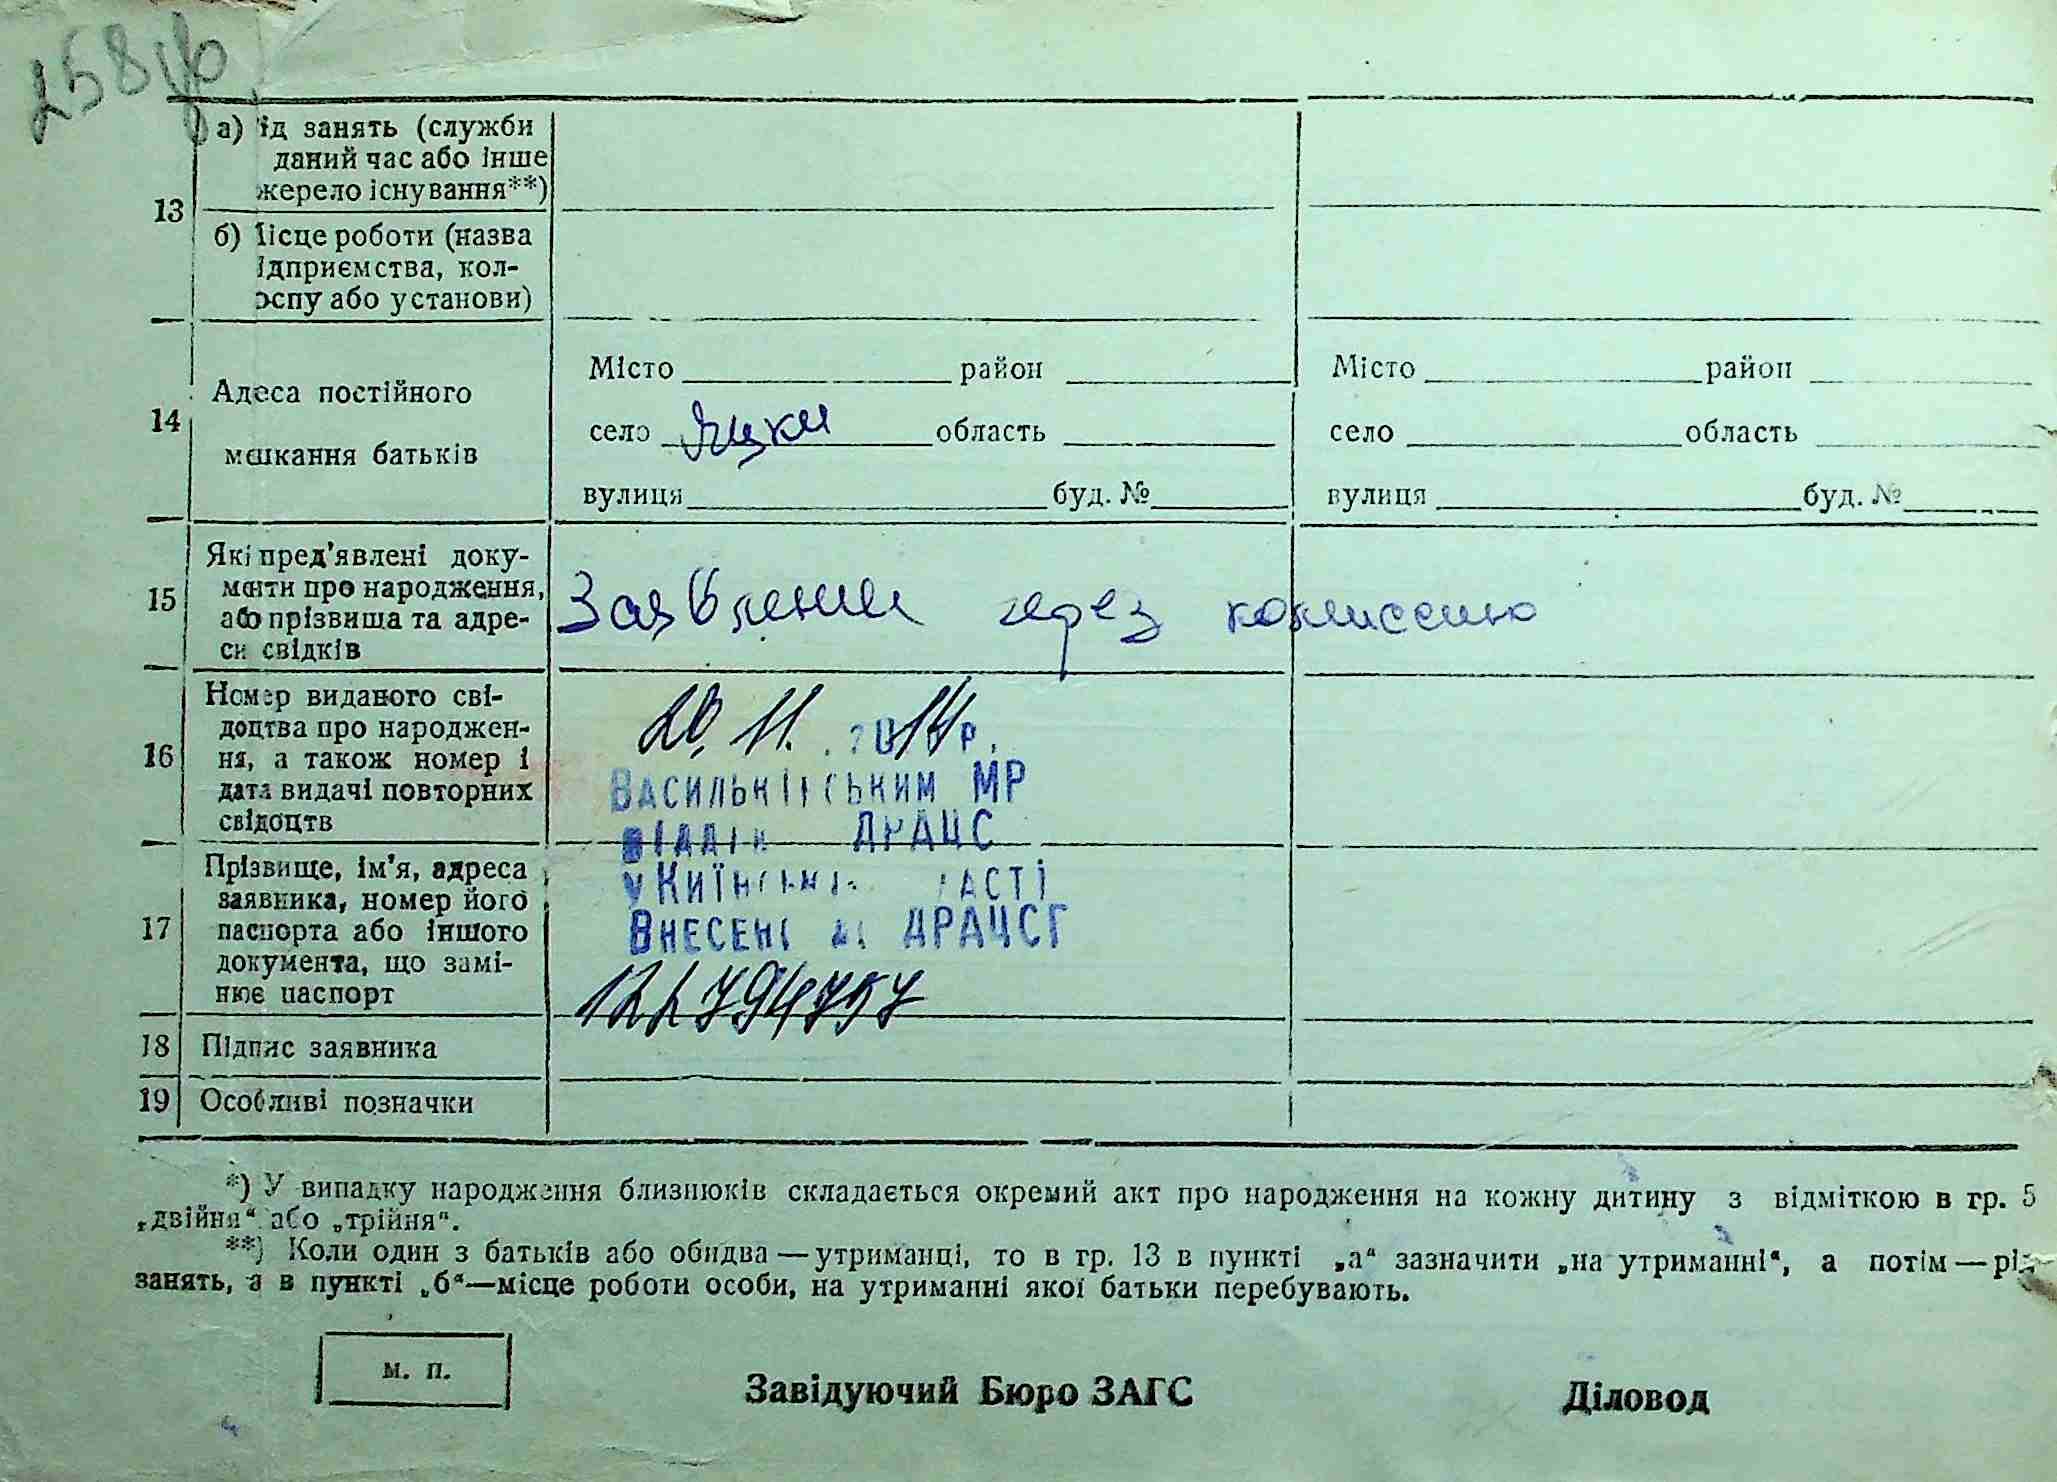 258 зв
13 а) ід занять (служби
даний час або інше
жерело існування**)
б) Місце роботи (назва
ідприємства, кол-
оспу або установи)
14 Адреса постійного
мешкання батьків
Місто район Місто район
село Яцки область село область
вулиця буд. № вулиця буд. №
15 Які пред'явлені доку-
менти про народження,
або прізвища та адре-
си свідків
Заявлении через комиссию
16 Номер виданого сві-
доцтва про народжен-
ня, а також номер і
дата видачі повторних
свідоцтв
20. 11. 2014 р.
Васильківським МР
відділ ДРАЦС
17 Прізвище, ім'я, адреса
заявника, номер його
паспорта або іншого
документа, що замі-
нює паспорт
у Київській області
Внесені до ДРАЦСГ
122794757
18 Підпис заявника
19 Особливі позначки
*) У випадку народження близнюків складається окремий акт про народження на кожну дитину з відміткою в гр. 5
„двійня“ або „трійня“.
**) Коли один з батьків або обидва—утриманці, то в гр. 13 в пункті „а“ зазначити „на утриманні“, а потім—рід
занять, а в пункті „б“—місце роботи особи, на утриманні якої батьки перебувають.
м. п.
Завідуючий Бюро ЗАГС Діловод